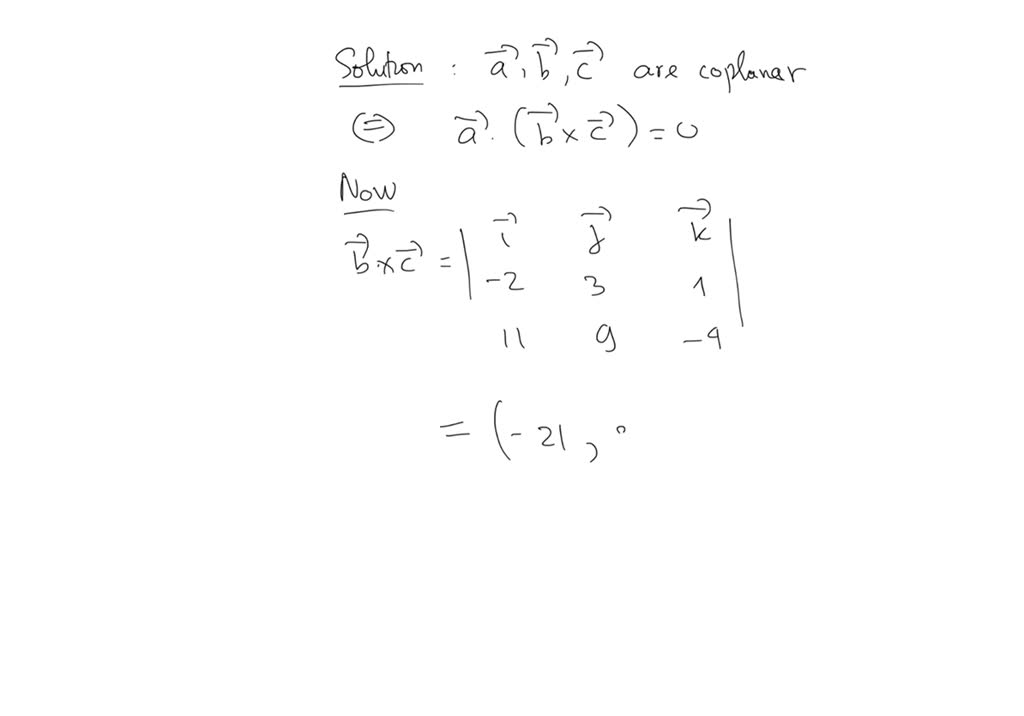 Solution : a⃗, b⃗, c⃗ are coplanar
⇔ a⃗. (b⃗ × c⃗) = 0
Now
b⃗ × c⃗ = | i⃗ j⃗ k⃗ |
-2 3 1
11 9 -4
= (-21 ,